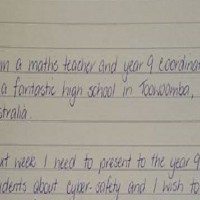 am a maths teacher and year 9 coordinat
a fantastic high school in Toowoomba,
stralia.
xt week I need to present to the year 9
udents about cyber-safety and I wish to